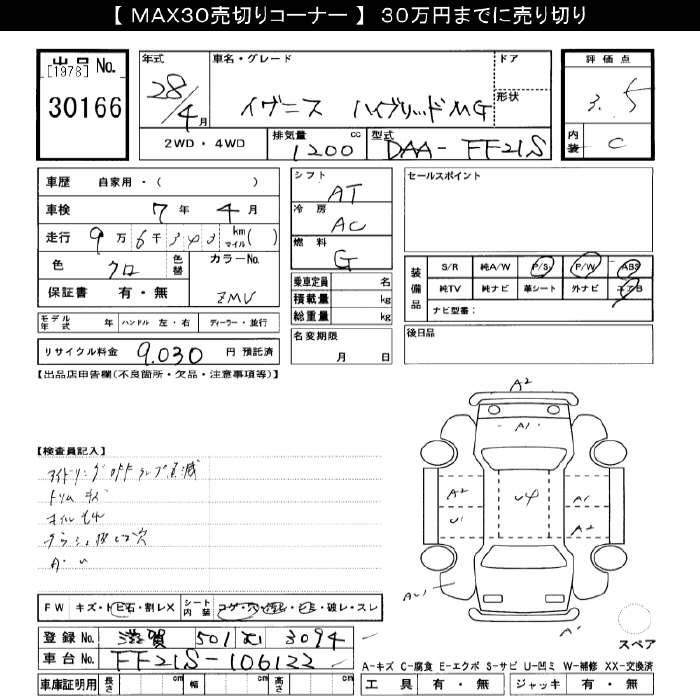 【 MAX30売切りコーナー 】 30万円までに売り切り
出品 No.
[1978]
30166
年式
28/4月
車名・グレード
イグニス ハイブリッドMG
ドア
形状
評価点
3.5
内装
C
2WD・4WD
排気量 cc
1200
型式
DAA-FF21S
車歴 自家用・( )
車検 7年 4月
走行 9万6千343 km マイル ( )
色 クロ 色替
カラーNo.
ZMV
保証書 有・無
モデル年式 年 ハンドル 左・右 ディーラー・並行
リサイクル料金 9,030 円 預託済
シフト
AT
冷房
AC
燃料
G
乗車定員 名
積載量 kg
総重量 kg
名変期限
月 日
セールスポイント
装備品
S/R 純A/W P/S P/W ABS
純TV 純ナビ 革シート 外ナビ エアB
ナビ型番:
後日品
【出品店申告欄(不良箇所・欠品・注意事項等)】
【検査員記入】
アイドリングOFFランプ点滅
トリム キズ
オイルモレ
A・U
A2
A1
A2
U1
U4
A1
A2
AU1
A1
スペア
FW キズ・トビ石・割レX
シート内装 コゲ・穴・汚レ・シミ・破レ・スレ
登録 No. 滋賀 501 む 3094
車台 No. FF21S-106122
車庫証明用 長さ cm 幅 cm 高さ cm
A-キズ C-腐食 E-エクボ S-サビ U-凹ミ W-補修 XX-交換済
工具 有・無 ジャッキ 有・無